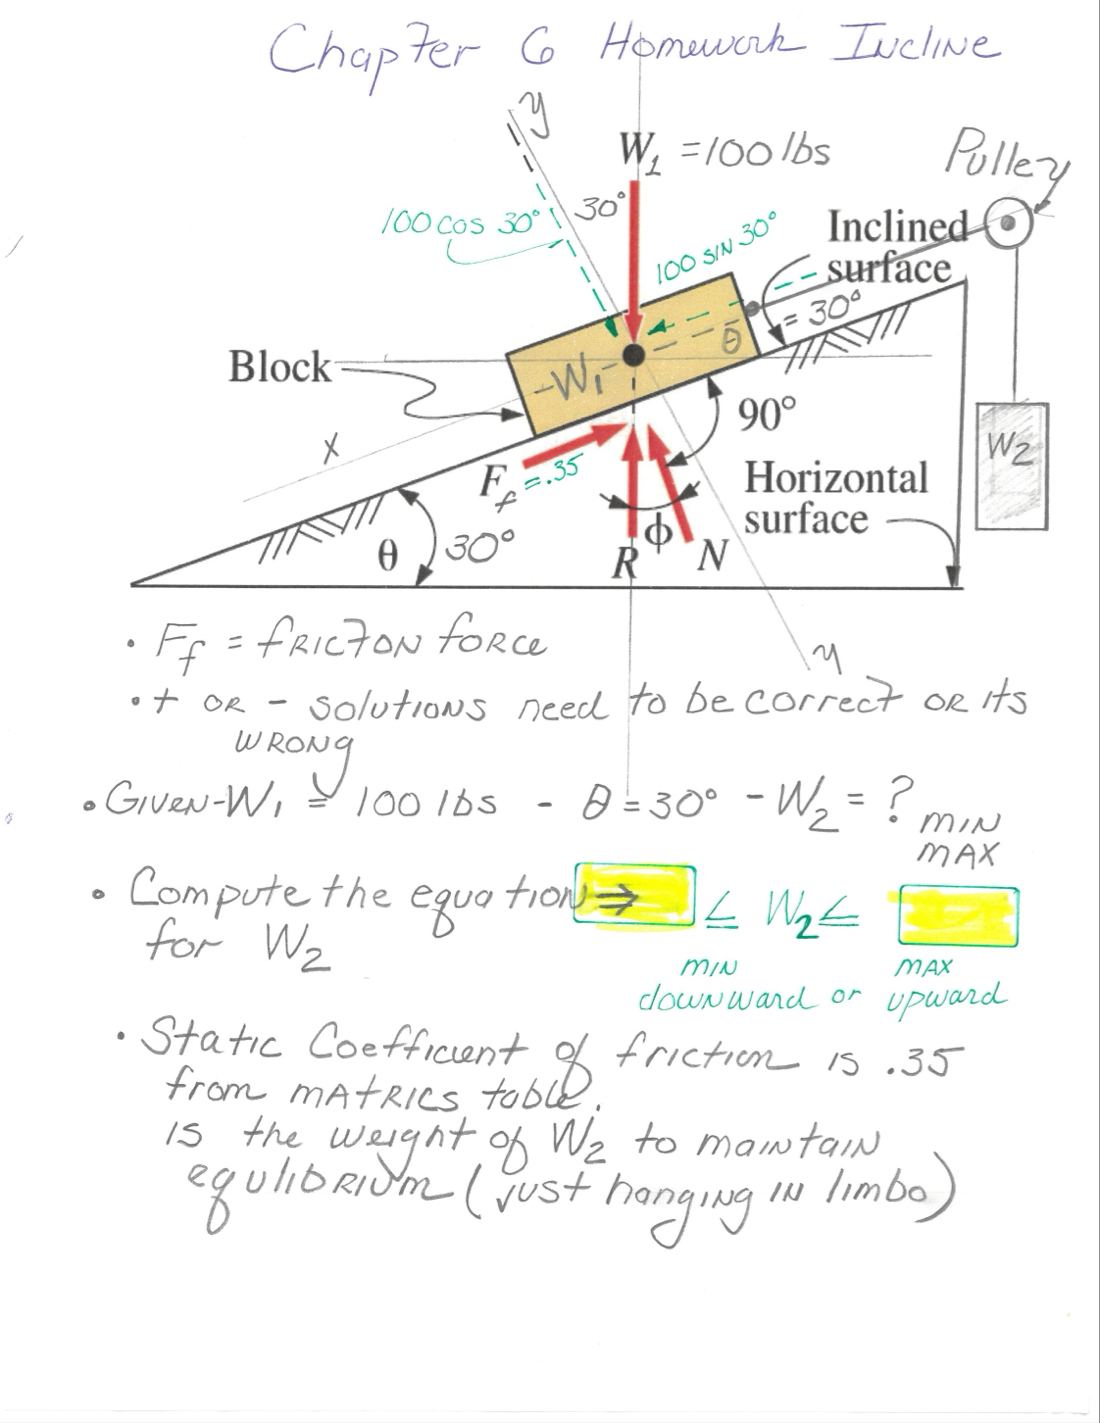 Chapter 6 Homework Incline
y
W1 = 100 lbs
Pulley
30°
100 cos 30°
100 SIN 30°
Inclined
surface
= 30°
θ
Block
W1
90°
x
Ff = .35
W2
Horizontal
surface
θ
30°
ϕ
R
N
y
• Ff = fRICTON fORCe
• + OR - solutions need to be correct OR its
WRONg
• GIVEN-W1 = 100 lbs - θ = 30° - W2 = ? MIN
MAX
• Compute the equation ⇒ ≤ W2 ≤
for W2
MIN MAX
downward or upward
• Static Coefficient of friction is .35
from MATRICS table.
IS the weight of W2 to maintain
equlibrium (just hanging IN limbo)